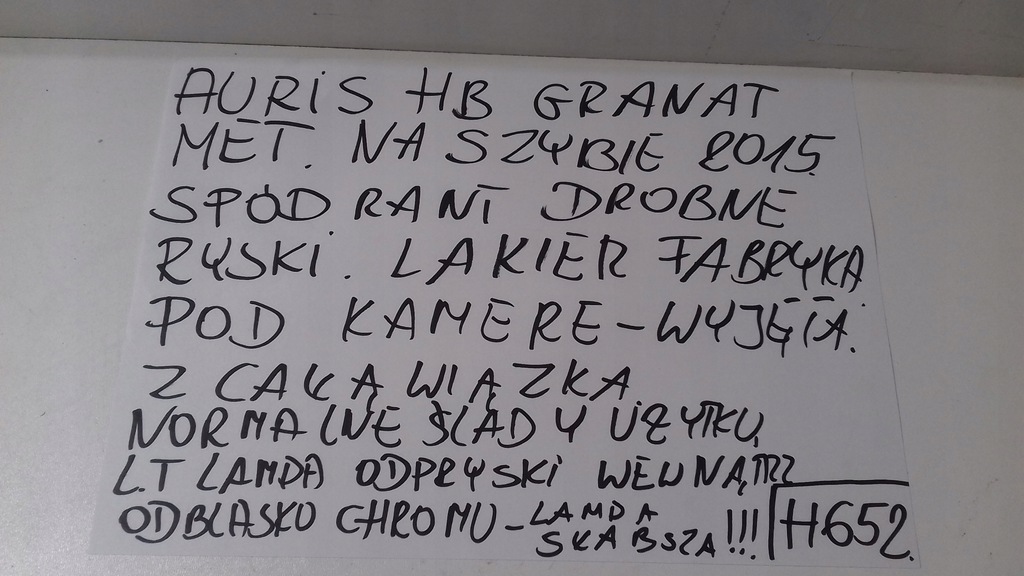 AURiS HB GRANAT
MET. NA SZYBIE 2015.
SPÓD RANT DROBNE
RYSKi. LAKIER FABRYKA
POD KAMERE-WYJĘTA.
Z CAŁĄ WIĄZKĄ
NORMALNE ŚLADY UŻYTKU,
L.T LAMPA ODPRYSKi WEWNĄTRZ
ODBLASKU CHROMU-LAMPA SŁABSZA!!!
H652.